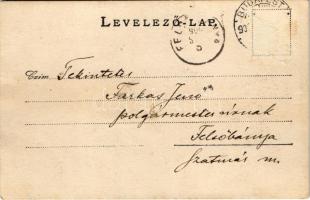 LEVELEZŐ-LAP
BUDAPEST
Czim: Tekintetes
Farkas Jenő
polgármester úrnak
Felsőbánya
Szatmár m.